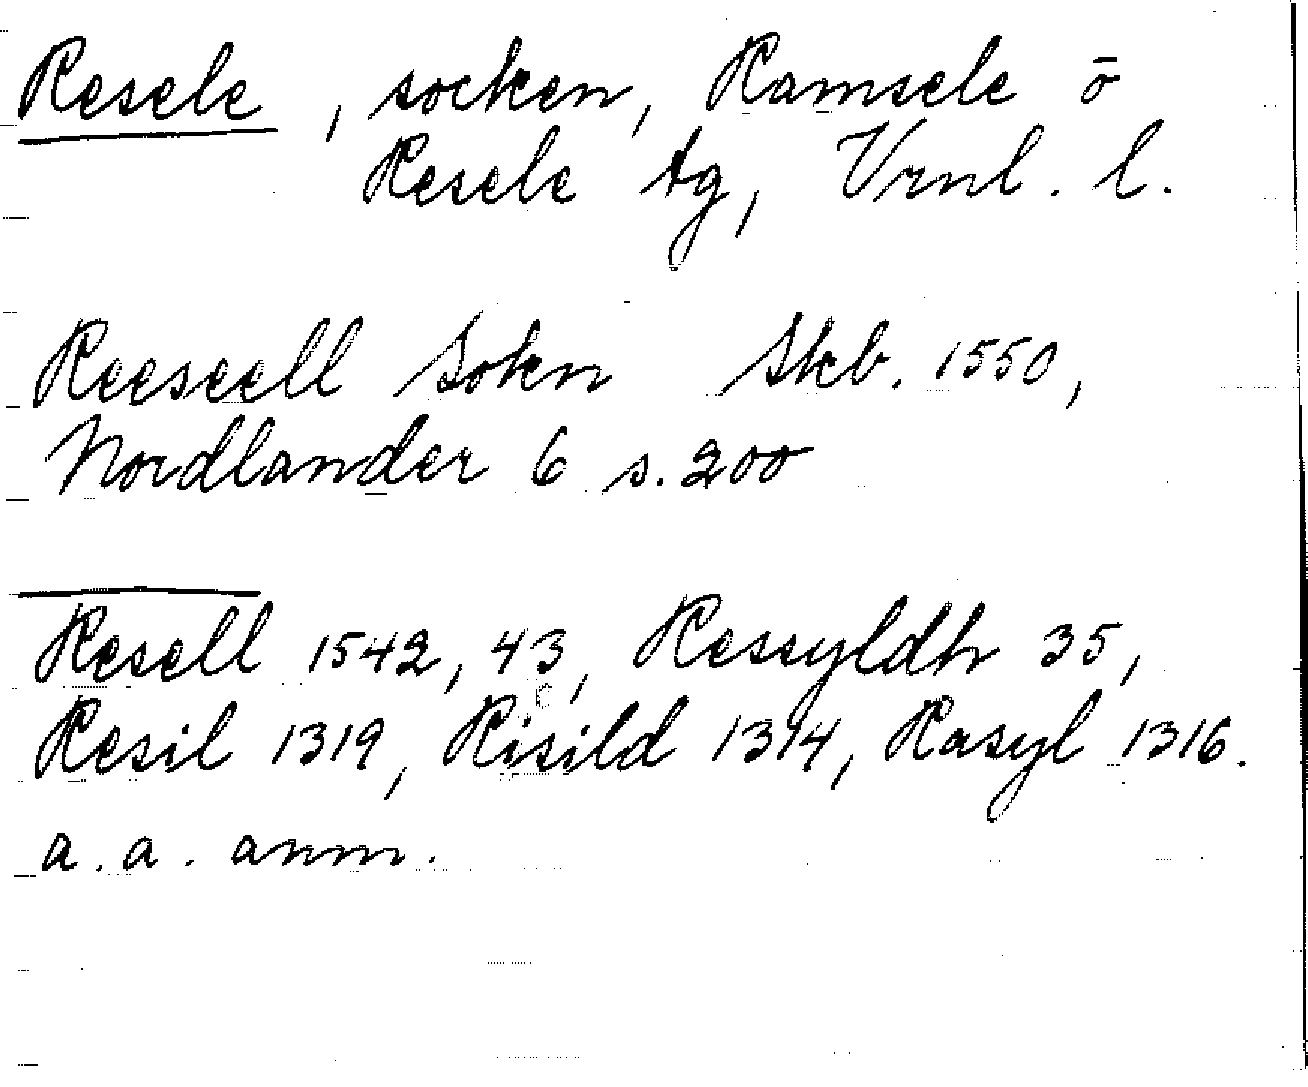 Resele, socken, Ramsele o
Resele tg, Vrnl. l.
Reeseell Sokn Skb. 1550,
Nordlander 6 s. 200
Resell 1542, 43, Ressyldh 35,
Resil 1319, Risild 1314, Rasyl 1316.
a. a. anm.